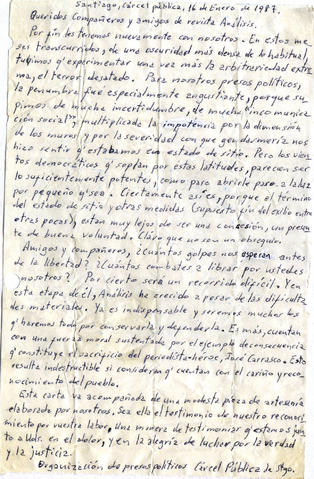 Santiago, Cárcel pública, 16 de Enero de 1987.
Queridos Compañeros y amigos de revista Análisis.
Por fin los tenemos nuevamente con nosotros. En estos me
ses transcurridos, de una oscuridad más densa de lo habitual,
tuvimos q' experimentar una vez más la arbitrariedad extre
ma, el terror desatado. Para nosotros presos políticos,
la penumbra fue especialmente angustiante, porque su
pimos de mucha incertidumbre, de mucha "incomunica
ción social", multiplicada la impotencia por la dimensión
de los muros y por la severidad con que gendarmería nos
hizo sentir q' estábamos con estado de sitio. Pero los vien
tos democráticos q' soplan por estas latitudes, parecen ser
lo suficientemente potentes, como para abrirle paso a la luz
por pequeño q' sea. Ciertamente así es, porque el término
del estado de sitio y otras medidas (supuesto fin del exilio entre
otras pocas), están muy lejos de ser una concesión, un presen
te de buena voluntad. Claro que no son un obsequio.
Amigos y compañeros, ¿cuántos golpes nos esperan antes
de la libertad? ¿Cuántos combates a librar por ustedes
y nosotros? Por cierto será un recorrido difícil. Y en
esta etapa de él, Análisis ha crecido a pesar de las dificulta
des materiales. Ya es indispensable y seremos muchos los
q' haremos todo por conservarla y defenderla. Es más, cuentan
con una fuerza moral sustentada por el ejemplo de consecuencia
q' constituye el sacrificio del periodista-héroe, José Carrasco. Esto
resulta indestructible si consideran q' cuentan con el cariño y reco
nocimiento del pueblo.
Esta carta va acompañada de una modesta pieza de artesanía
elaborada por nosotros. Sea ella el testimonio de nuestro reconoci
miento por vuestra labor. Una manera de testimoniar q' estamos jun
to a Uds. en el dolor, y en la alegría de luchar por la verdad
y la justicia.
Organización de presos políticos Cárcel Pública de Stgo.